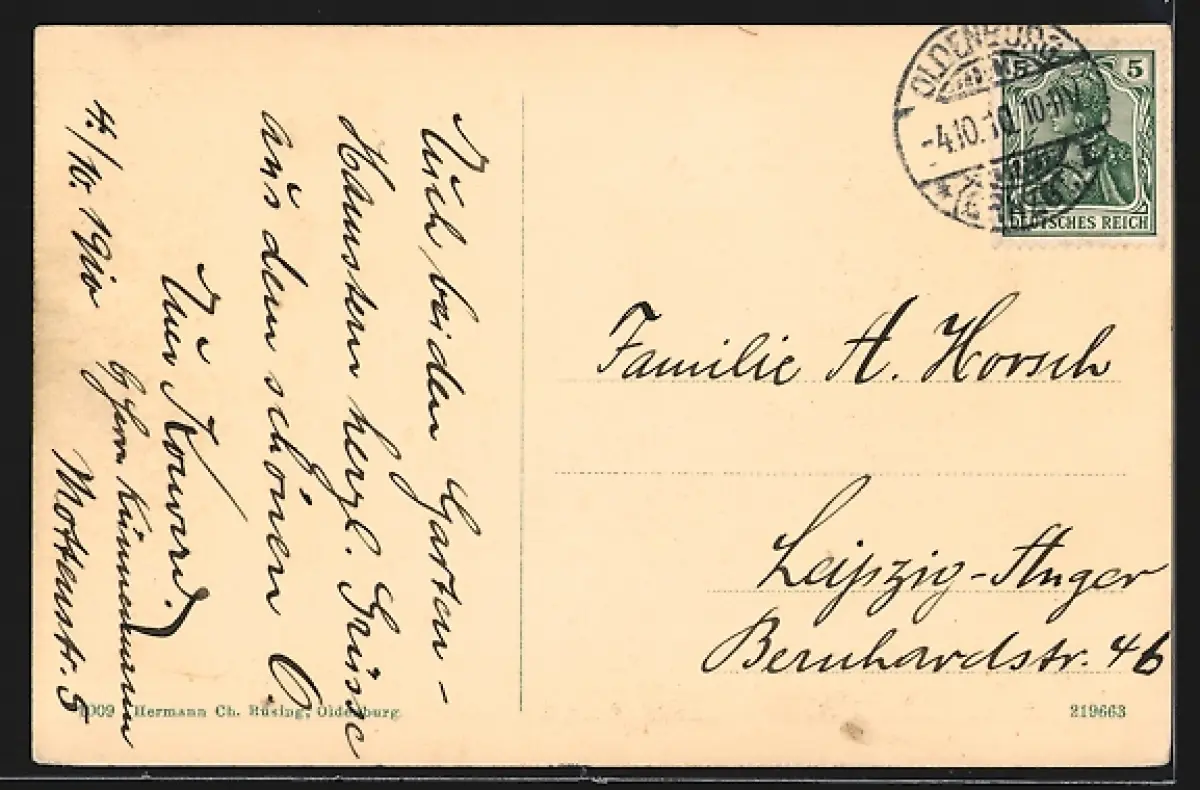 4./10. 1910
Euch beiden Garten-
Hamstern herzl. Grüsse
aus dem schönen O.
Euer Konrad
b/Herrn Künnemann
Mottenstr. 5
OLDENBURG
-4.10.10. 10-11V
5 5
DEUTSCHES REICH
Familie A. Horsch
Leipzig-Anger
Bernhardstr. 46
1909 Hermann Ch. Büsing, Oldenburg.
219663